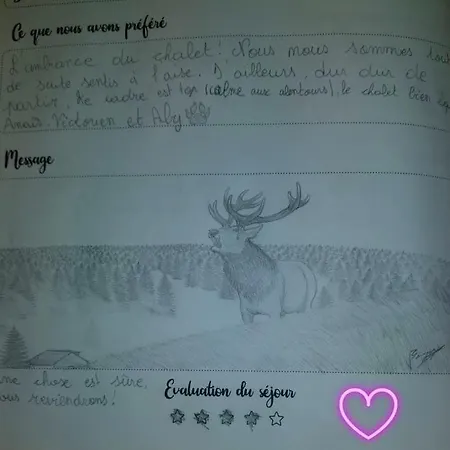 Ce que nous avons préféré
L'ambiance du chalet! Nous nous sommes tout
de suite sentis à l'aise. D'ailleurs, dur dur de
partir. Le cadre est top (calme aux alentours), le chalet bien
Anaïs, Victorien et Aby
Message
une chose est sûre,
nous reviendrons!
Evaluation du séjour